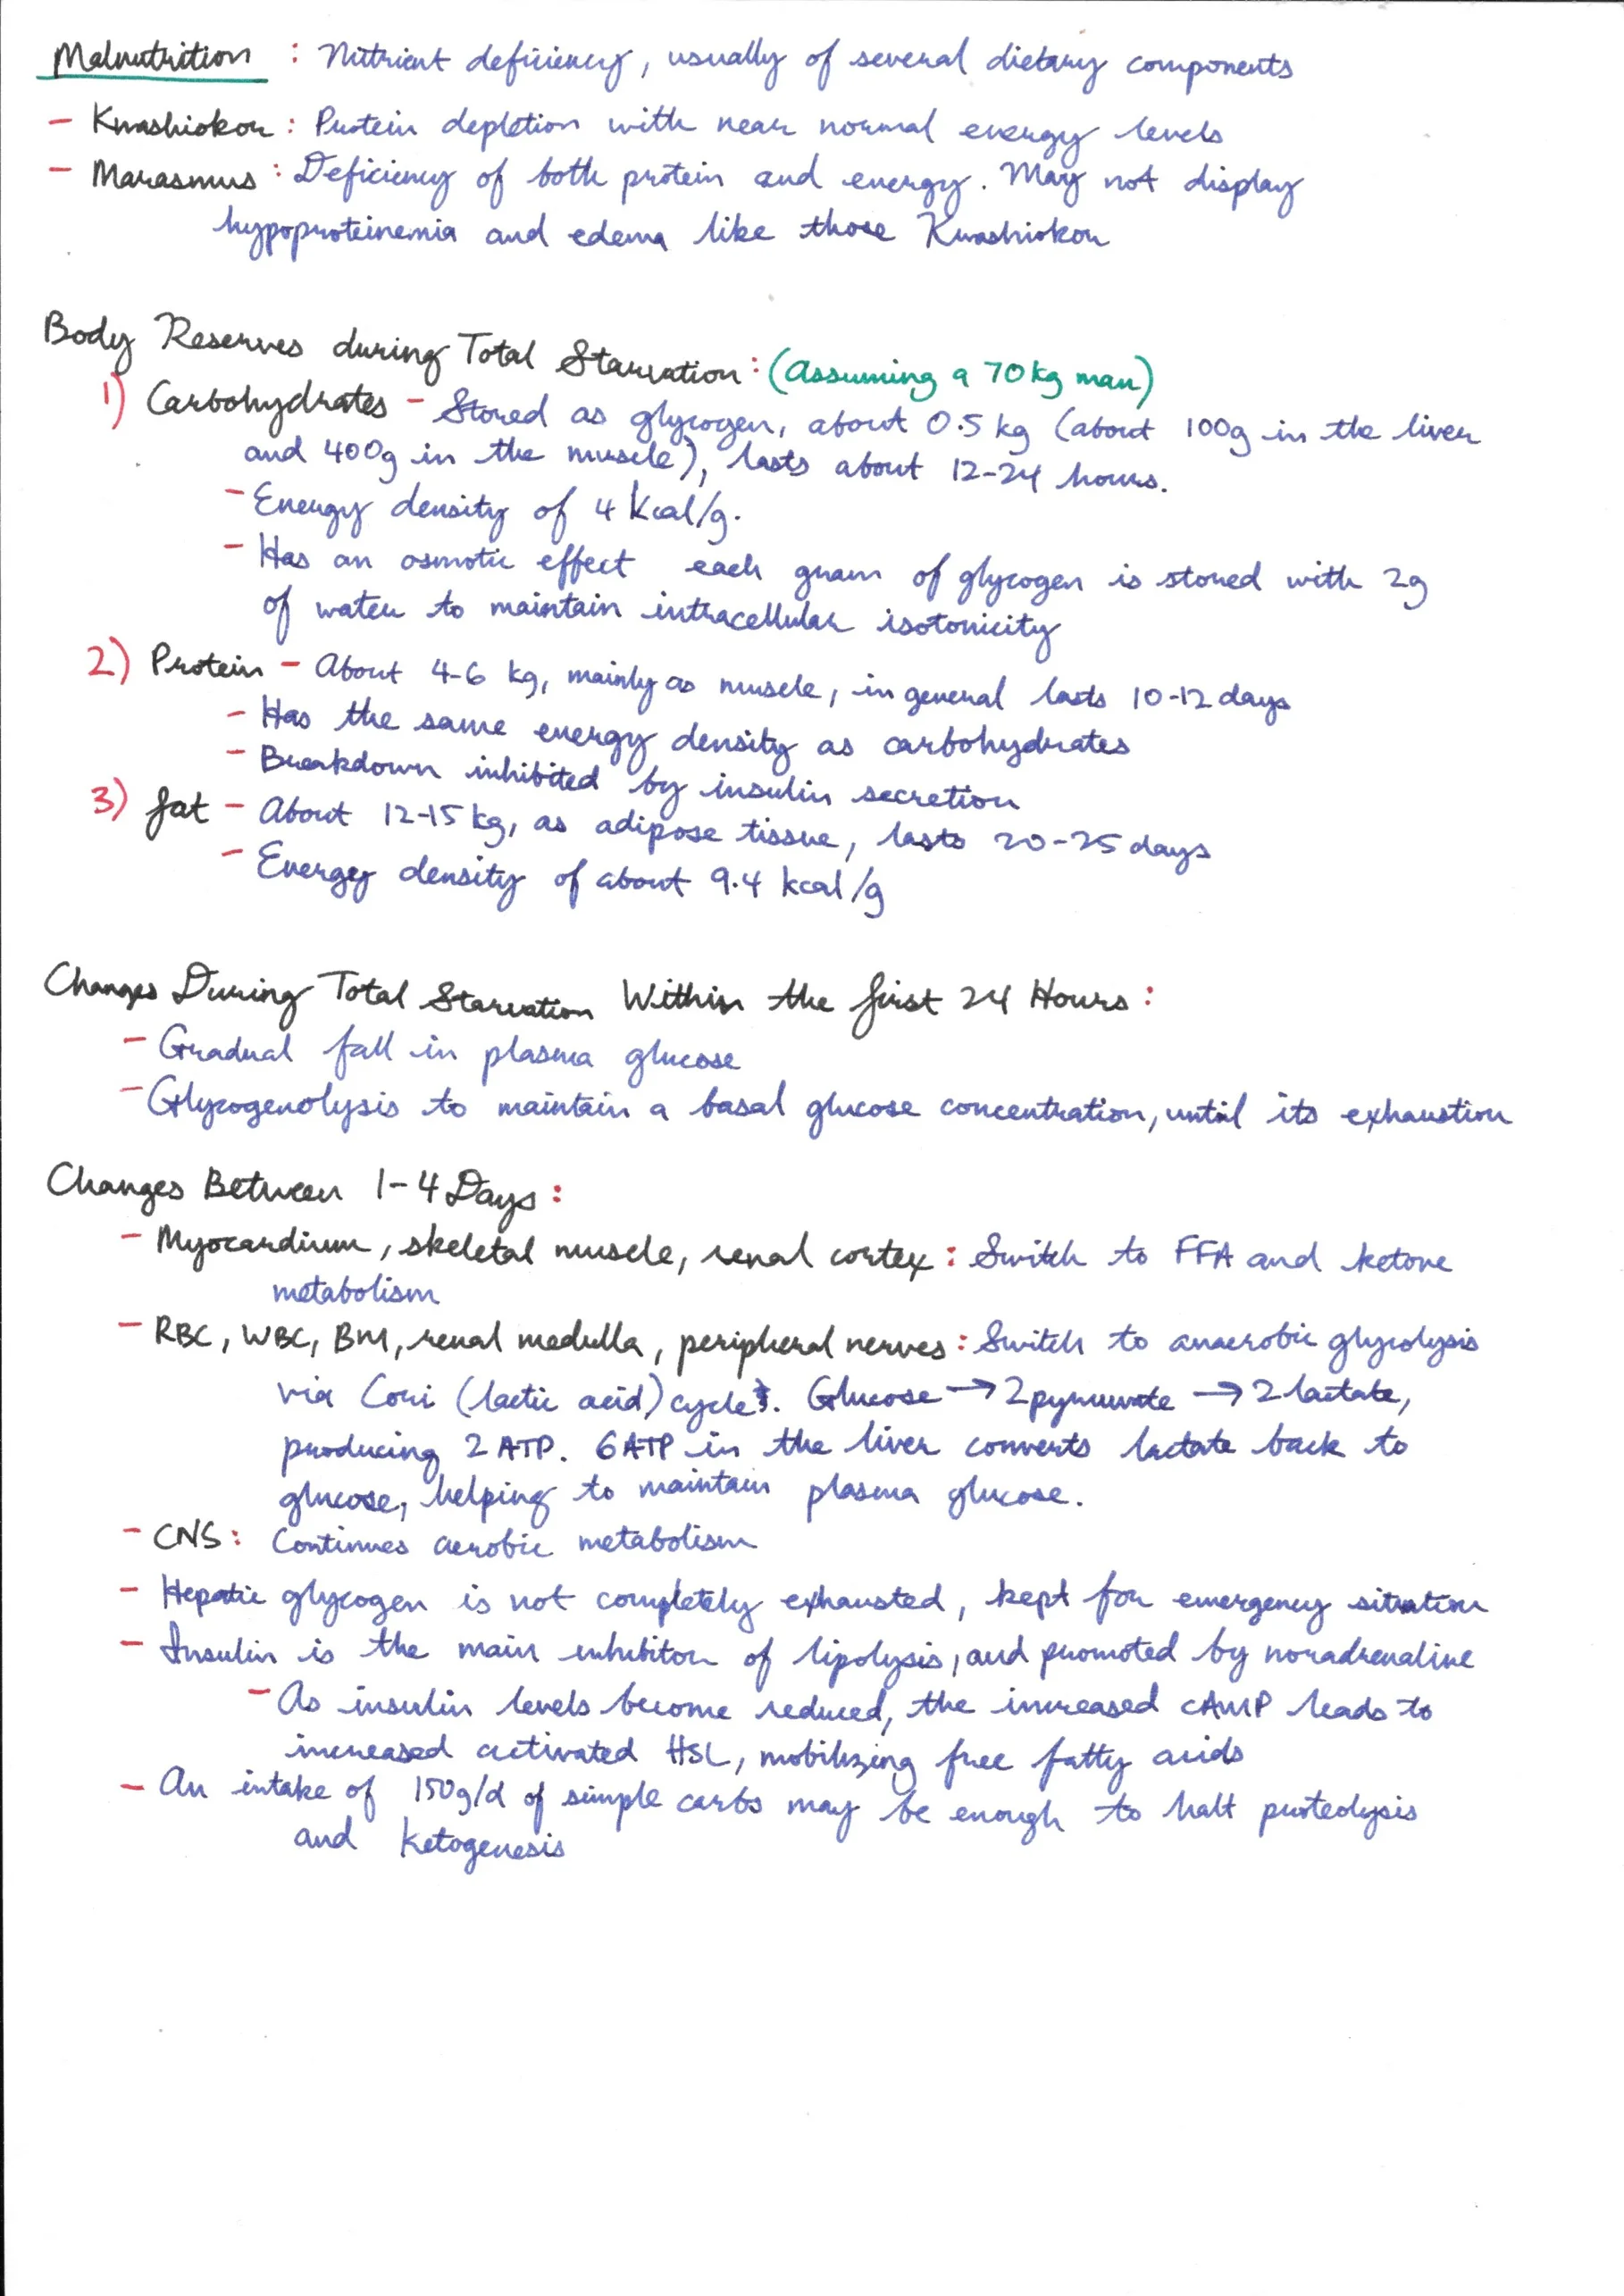 Malnutrition : Nutrient deficiency, usually of several dietary components
- Kwashiokor : Protein depletion with near normal energy levels
- Marasmus : Deficiency of both protein and energy. May not display
hypoproteinemia and edema like those Kwashiokor
Body Reserves during Total Starvation : (Assuming a 70kg man)
1) Carbohydrates - Stored as glycogen, about 0.5 kg (about 100g in the liver
and 400g in the muscle), lasts about 12-24 hours.
- Energy density of 4 kcal/g.
- Has an osmotic effect each gram of glycogen is stored with 2g
of water to maintain intracellular isotonicity
2) Protein - About 4-6 kg, mainly as muscle, in general lasts 10-12 days
- Has the same energy density as carbohydrates
- Breakdown inhibited by insulin secretion
3) Fat - About 12-15 kg, as adipose tissue, lasts 20-25 days
- Energy density of about 9.4 kcal/g
Changes During Total Starvation Within the first 24 Hours :
- Gradual fall in plasma glucose
- Glycogenolysis to maintain a basal glucose concentration, until its exhaustion
Changes Between 1-4 Days :
- Myocardium, skeletal muscle, renal cortex : Switch to FFA and ketone
metabolism
- RBC, WBC, BM, renal medulla, peripheral nerves : Switch to anaerobic glycolysis
via Cori (lactic acid) cycle. Glucose → 2 pyruvate → 2 lactate,
producing 2 ATP. 6 ATP in the liver converts lactate back to
glucose, helping to maintain plasma glucose.
- CNS : Continues aerobic metabolism
- Hepatic glycogen is not completely exhausted, kept for emergency situation
- Insulin is the main inhibitor of lipolysis, and promoted by noradrenaline
- As insulin levels become reduced, the increased cAMP leads to
increased activated HSL, mobilizing free fatty acids
- An intake of 150g/d of simple carbs may be enough to halt proteolysis
and ketogenesis